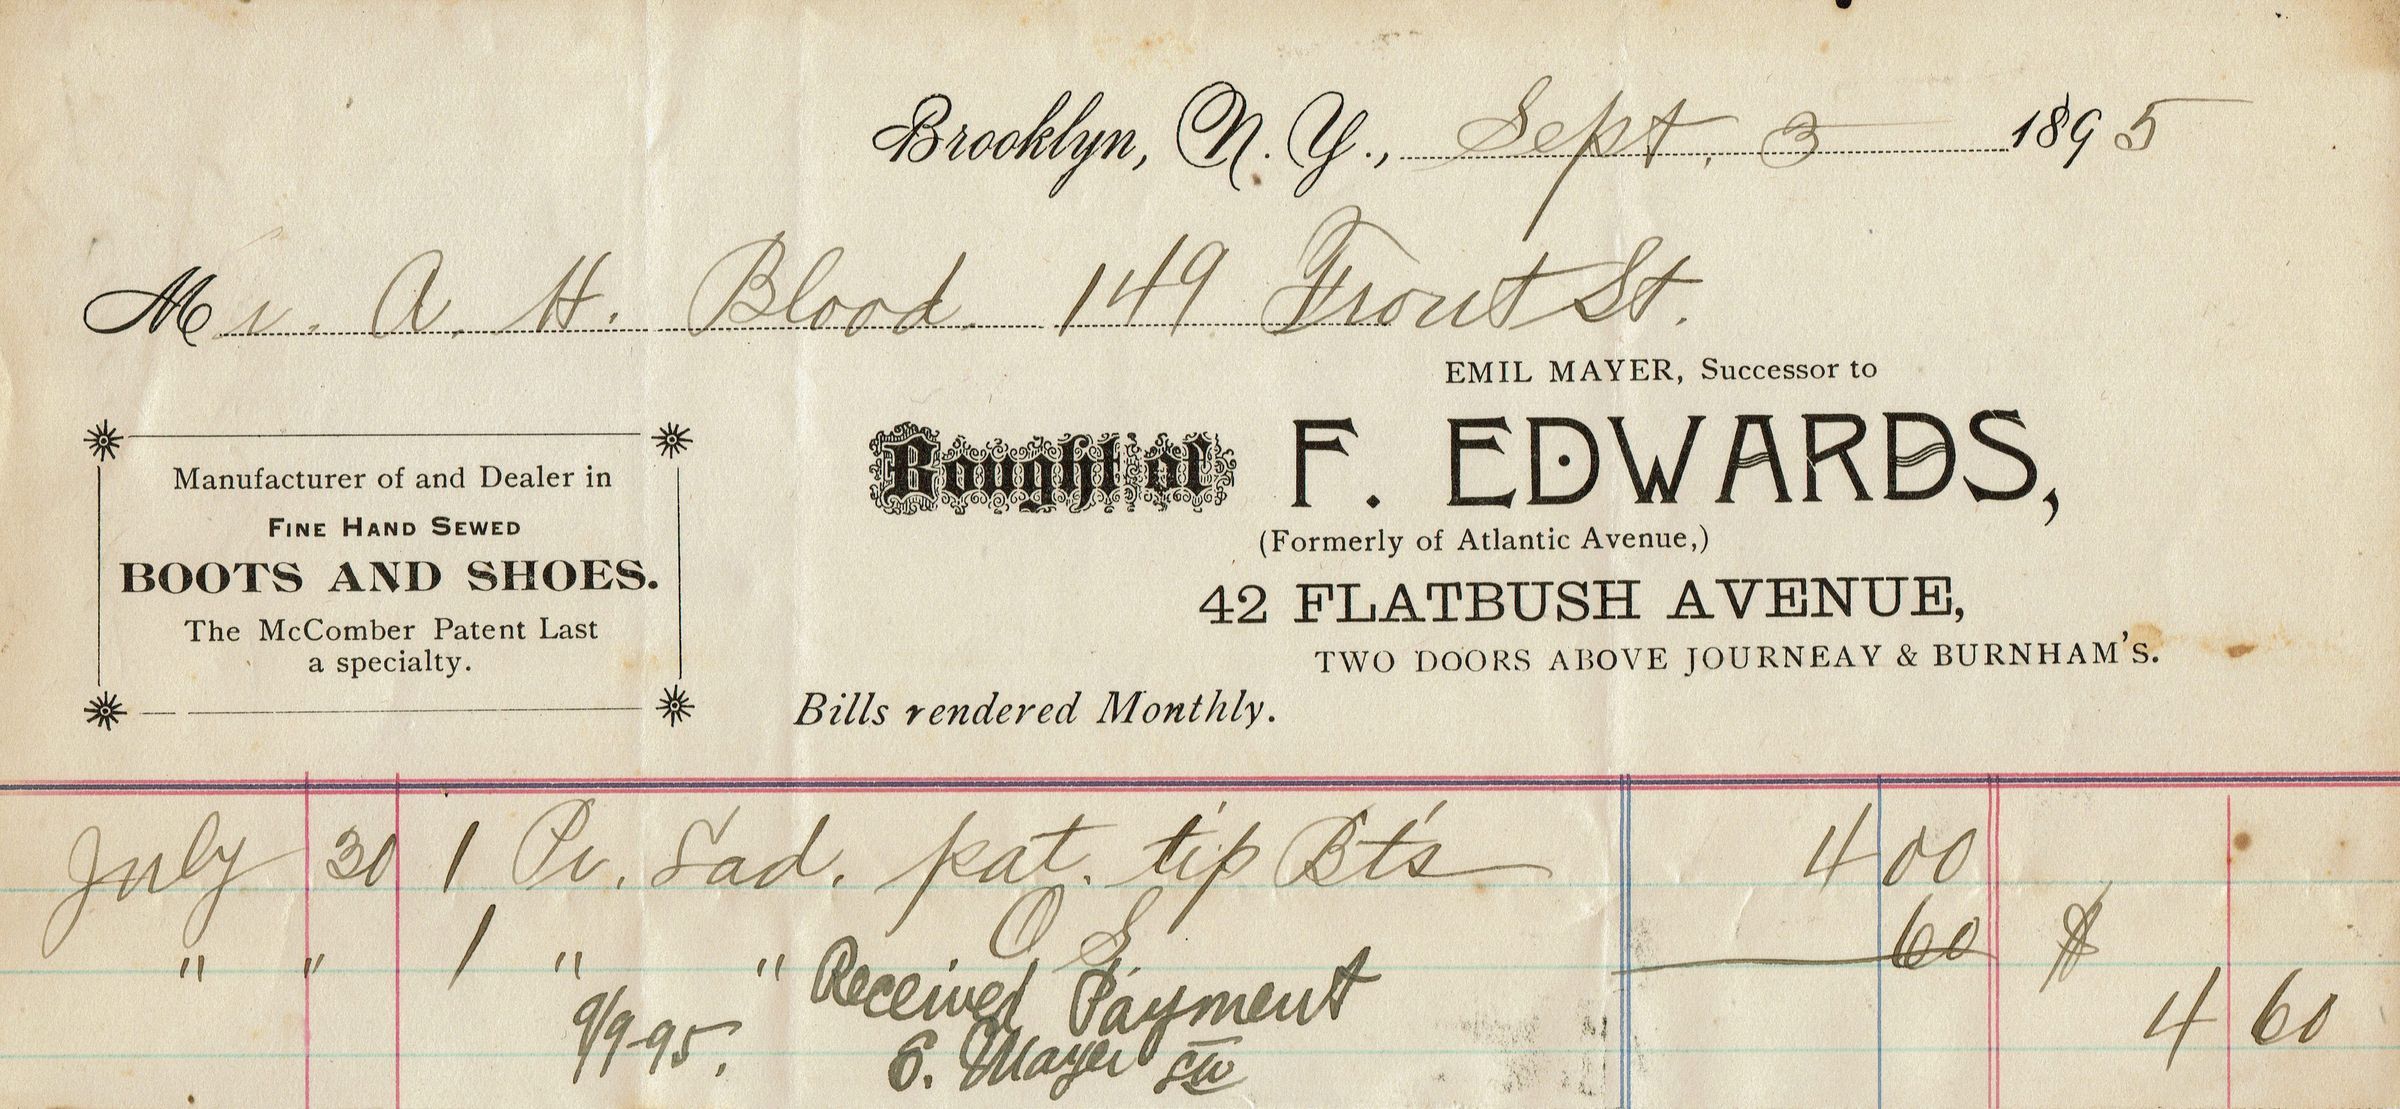 Brooklyn, N. Y., Sept. 3 1895
Mr. A. H. Blood. 149 Front St.
EMIL MAYER, Successor to
Bought of F. EDWARDS,
(Formerly of Atlantic Avenue,)
42 FLATBUSH AVENUE,
TWO DOORS ABOVE JOURNEAY & BURNHAM'S.
Manufacturer of and Dealer in
FINE HAND SEWED
BOOTS AND SHOES.
The McComber Patent Last
a specialty.
Bills rendered Monthly.
July 30 1 Pr. Lad. pat. tip Bt's 4 00
" " 1 " " O S. 60 $
4 60
Received Payment
9/9-95. E. Mayer